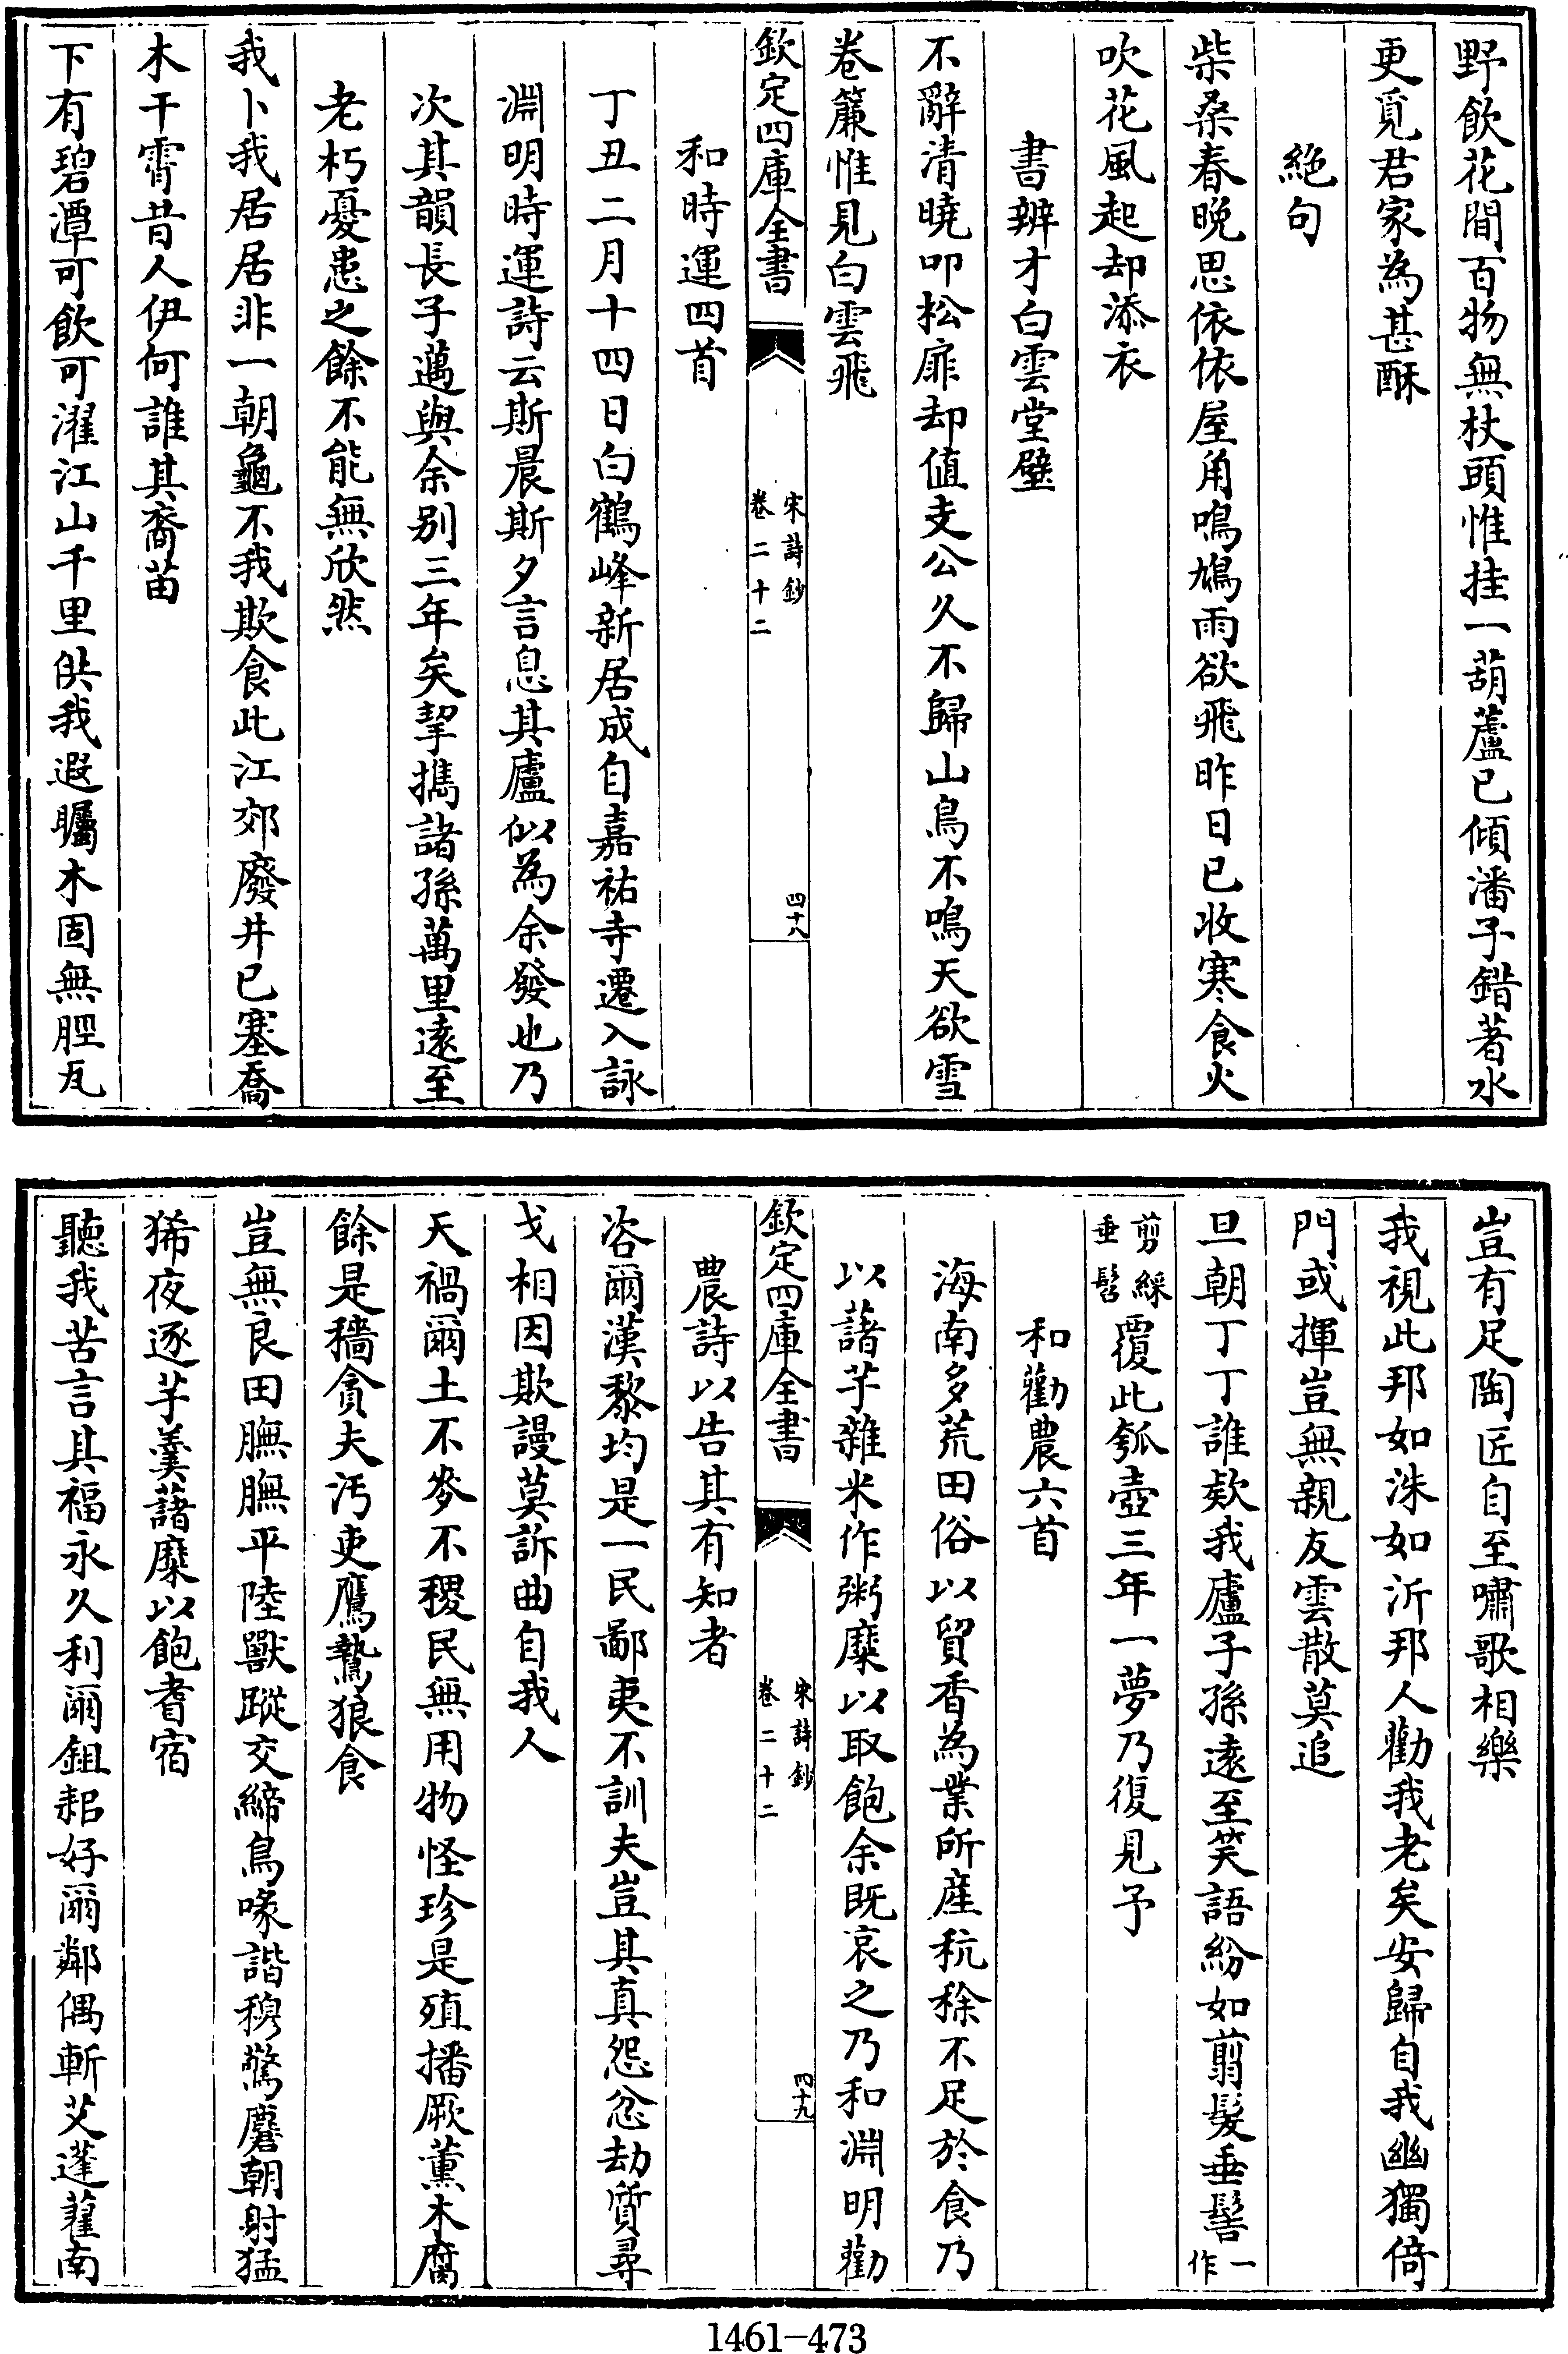 野飲花間百物無杖頭惟挂一葫蘆已傾潘子錯著水
更覓君家為甚酥
絕句
柴桑春晚思依依屋角鳴鳩雨欲飛昨日已收寒食火
吹花風起却添衣
書辨才白雲堂壁
不辭清曉叩松扉却值支公久不歸山鳥不鳴天欲雪
卷簾惟見白雲飛
欽定四庫全書
宋詩鈔
卷二十二
四十八
和時運四首
丁丑二月十四日白鶴峰新居成自嘉祐寺遷入詠
淵明時運詩云斯晨斯夕言息其廬似為余發也乃
次其韻長子邁與余别三年矣挈攜諸孫萬里遠至
老朽憂患之餘不能無欣然
我卜我居居非一朝龜不我欺食此江郊廢井已塞喬
木干霄昔人伊何誰其裔苗
下有碧潭可飲可濯江山千里供我遐矚木固無脛瓦
豈有足陶匠自至嘯歌相樂
我視此邦如洙如沂邦人勸我老矣安歸自我幽獨倚
門或揮豈無親友雲散莫追
旦朝丁丁誰欵我廬子孫遠至笑語紛如翦髮垂髻一作
剪綵垂髫覆此瓠壺三年一夢乃復見予
和勸農六首
海南多荒田俗以貿香為業所産秔稌不足於食乃
以藷芋雜米作粥糜以取飽余既哀之乃和淵明勸
欽定四庫全書
宋詩鈔
卷二十二
四十九
農詩以告其有知者
咨爾漢黎均是一民鄙夷不訓夫豈其真怨忿劫質尋
戈相因欺謾莫訴曲自我人
天禍爾土不麥不稷民無用物怪珍是殖播厥薰木腐
餘是穡貪夫汚吏鷹鷙狼食
豈無良田膴膴平陸獸蹤交締鳥喙諧穆驚麏朝射猛
豨夜逐芋羮藷糜以飽耆宿
聽我苦言其福永久利爾鉏耜好爾鄰偶斬艾蓬藋南
1461-473